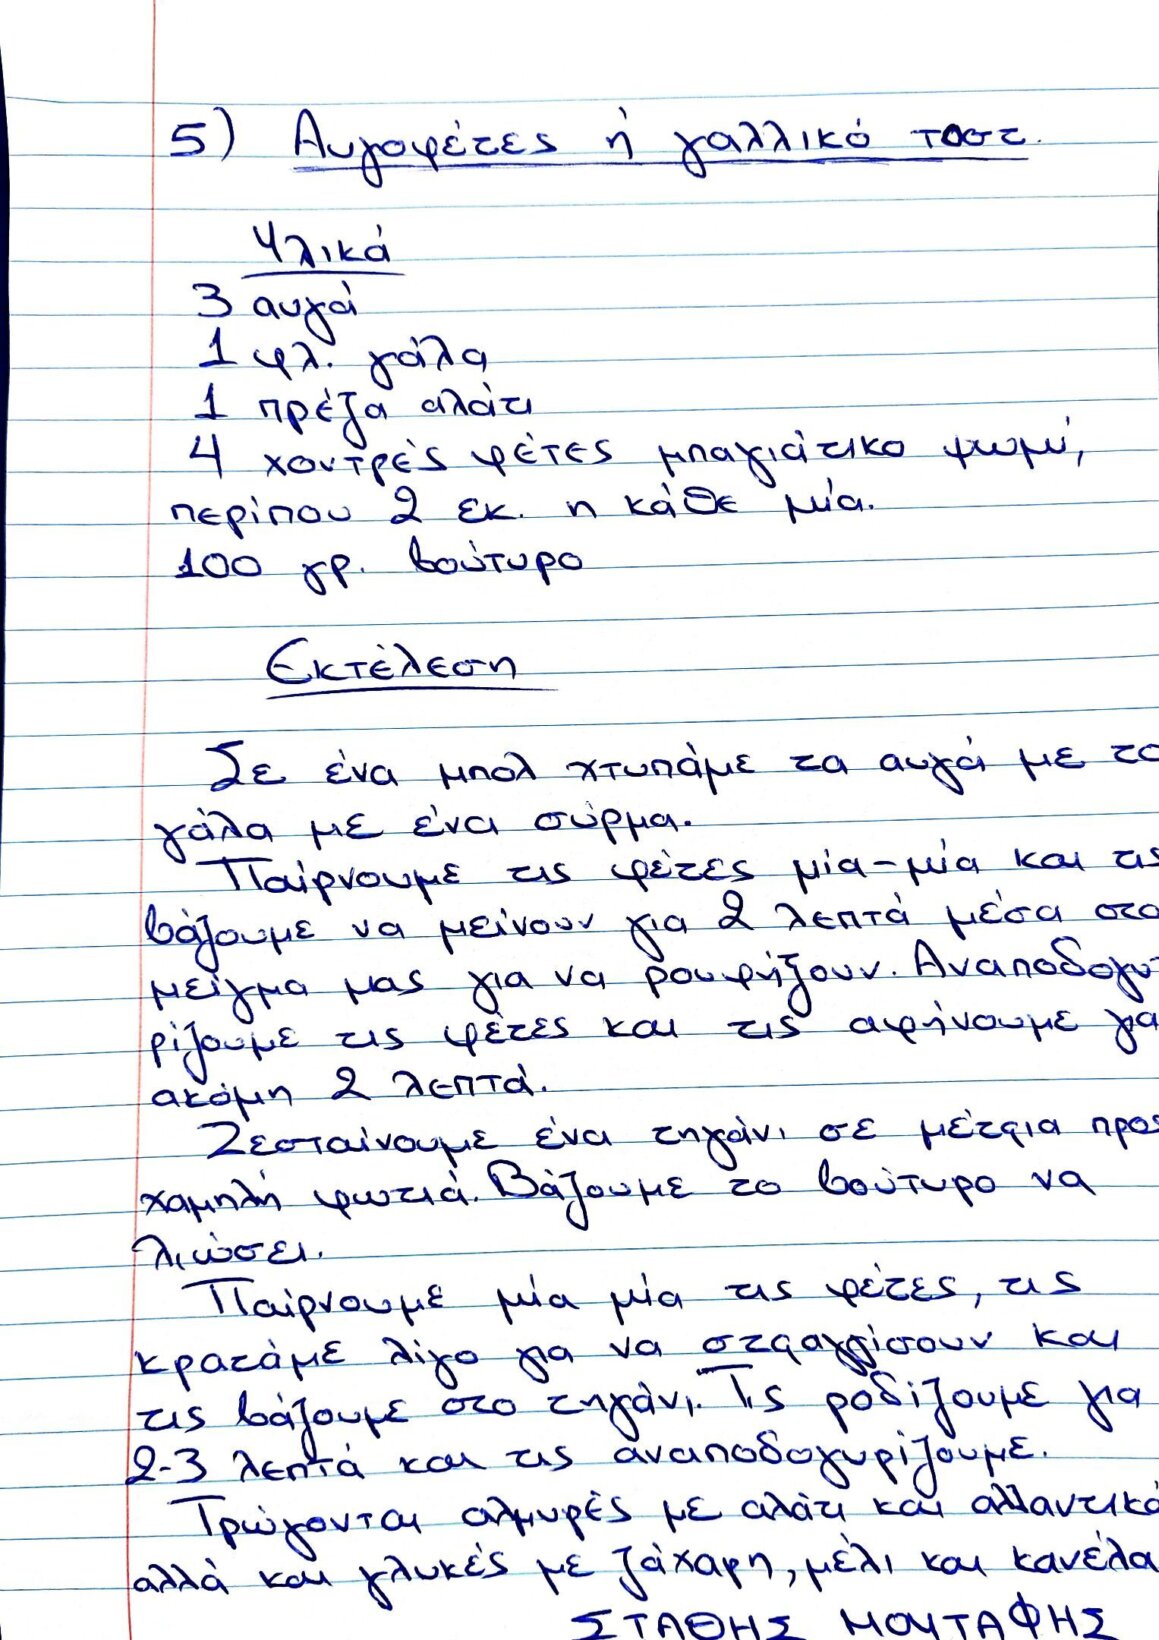 5) Αυγοφέτες ή γαλλικό τοστ.
Υλικά
3 αυγά
1 φλ. γάλα
1 πρέζα αλάτι
4 χοντρές φέτες μπαγιάτικο ψωμί,
περίπου 2 εκ. η κάθε μία.
100 γρ. βούτυρο
Εκτέλεση
Σε ένα μπολ χτυπάμε τα αυγά με το
γάλα με ένα σύρμα.
Παίρνουμε τις φέτες μία-μία και τις
βάζουμε να μείνουν για 2 λεπτά μέσα στο
μείγμα μας για να ρουφήξουν. Αναποδογυ-
ρίζουμε τις φέτες και τις αφήνουμε για
ακόμη 2 λεπτά.
Ζεσταίνουμε ένα τηγάνι σε μέτρια προς
χαμηλή φωτιά. Βάζουμε το βούτυρο να
λιώσει.
Παίρνουμε μία μία τις φέτες, τις
κρατάμε λίγο για να στραγγίσουν και
τις βάζουμε στο τηγάνι. Τις ροδίζουμε για
2-3 λεπτά και τις αναποδογυρίζουμε.
Τρώγονται αλμυρές με αλάτι και αλλαντικά
αλλά και γλυκές με ζάχαρη, μέλι και κανέλα
ΣΤΑΘΗΣ ΜΟΥΤΑΦΗΣ